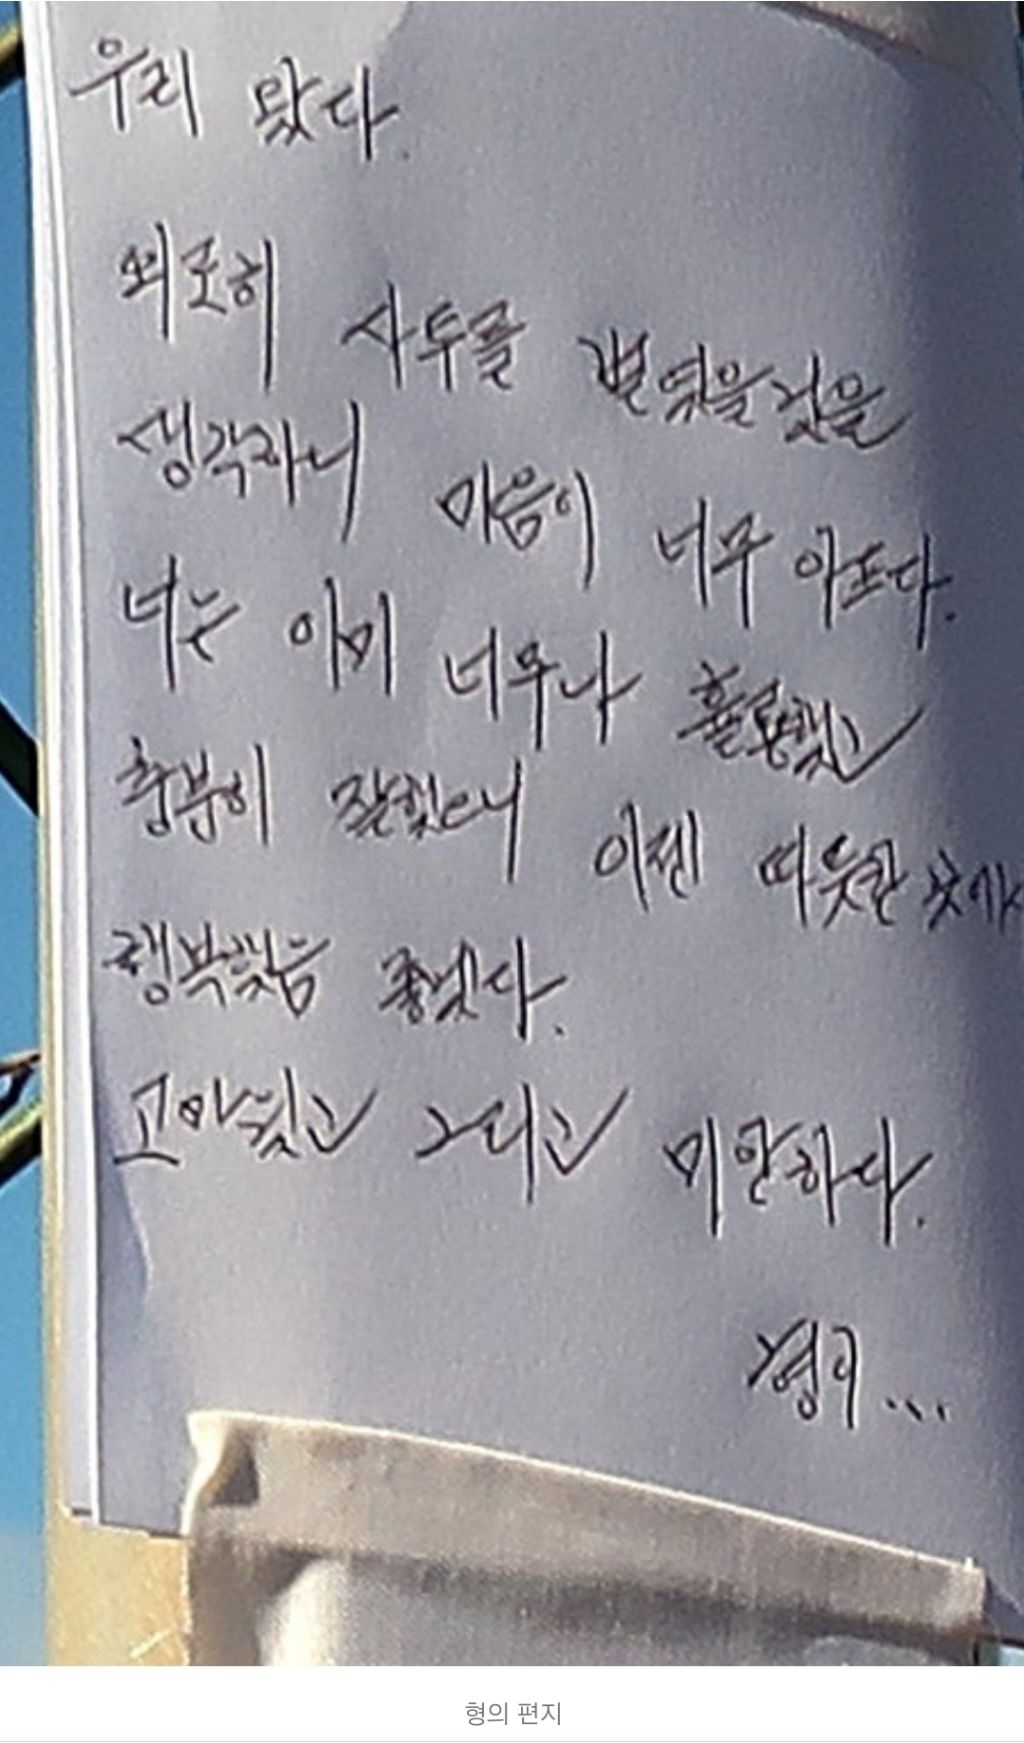 우리 왔다.
외로히 사투를 벌였을것을
생각하니 마음이 너무 아프다.
너는 이미 너무나 훌륭했고
충분히 잘했으니 이젠 따뜻한 곳에서
행복했음 좋겠다.
고마웠고 그리고 미안하다.
형이...
형의 편지